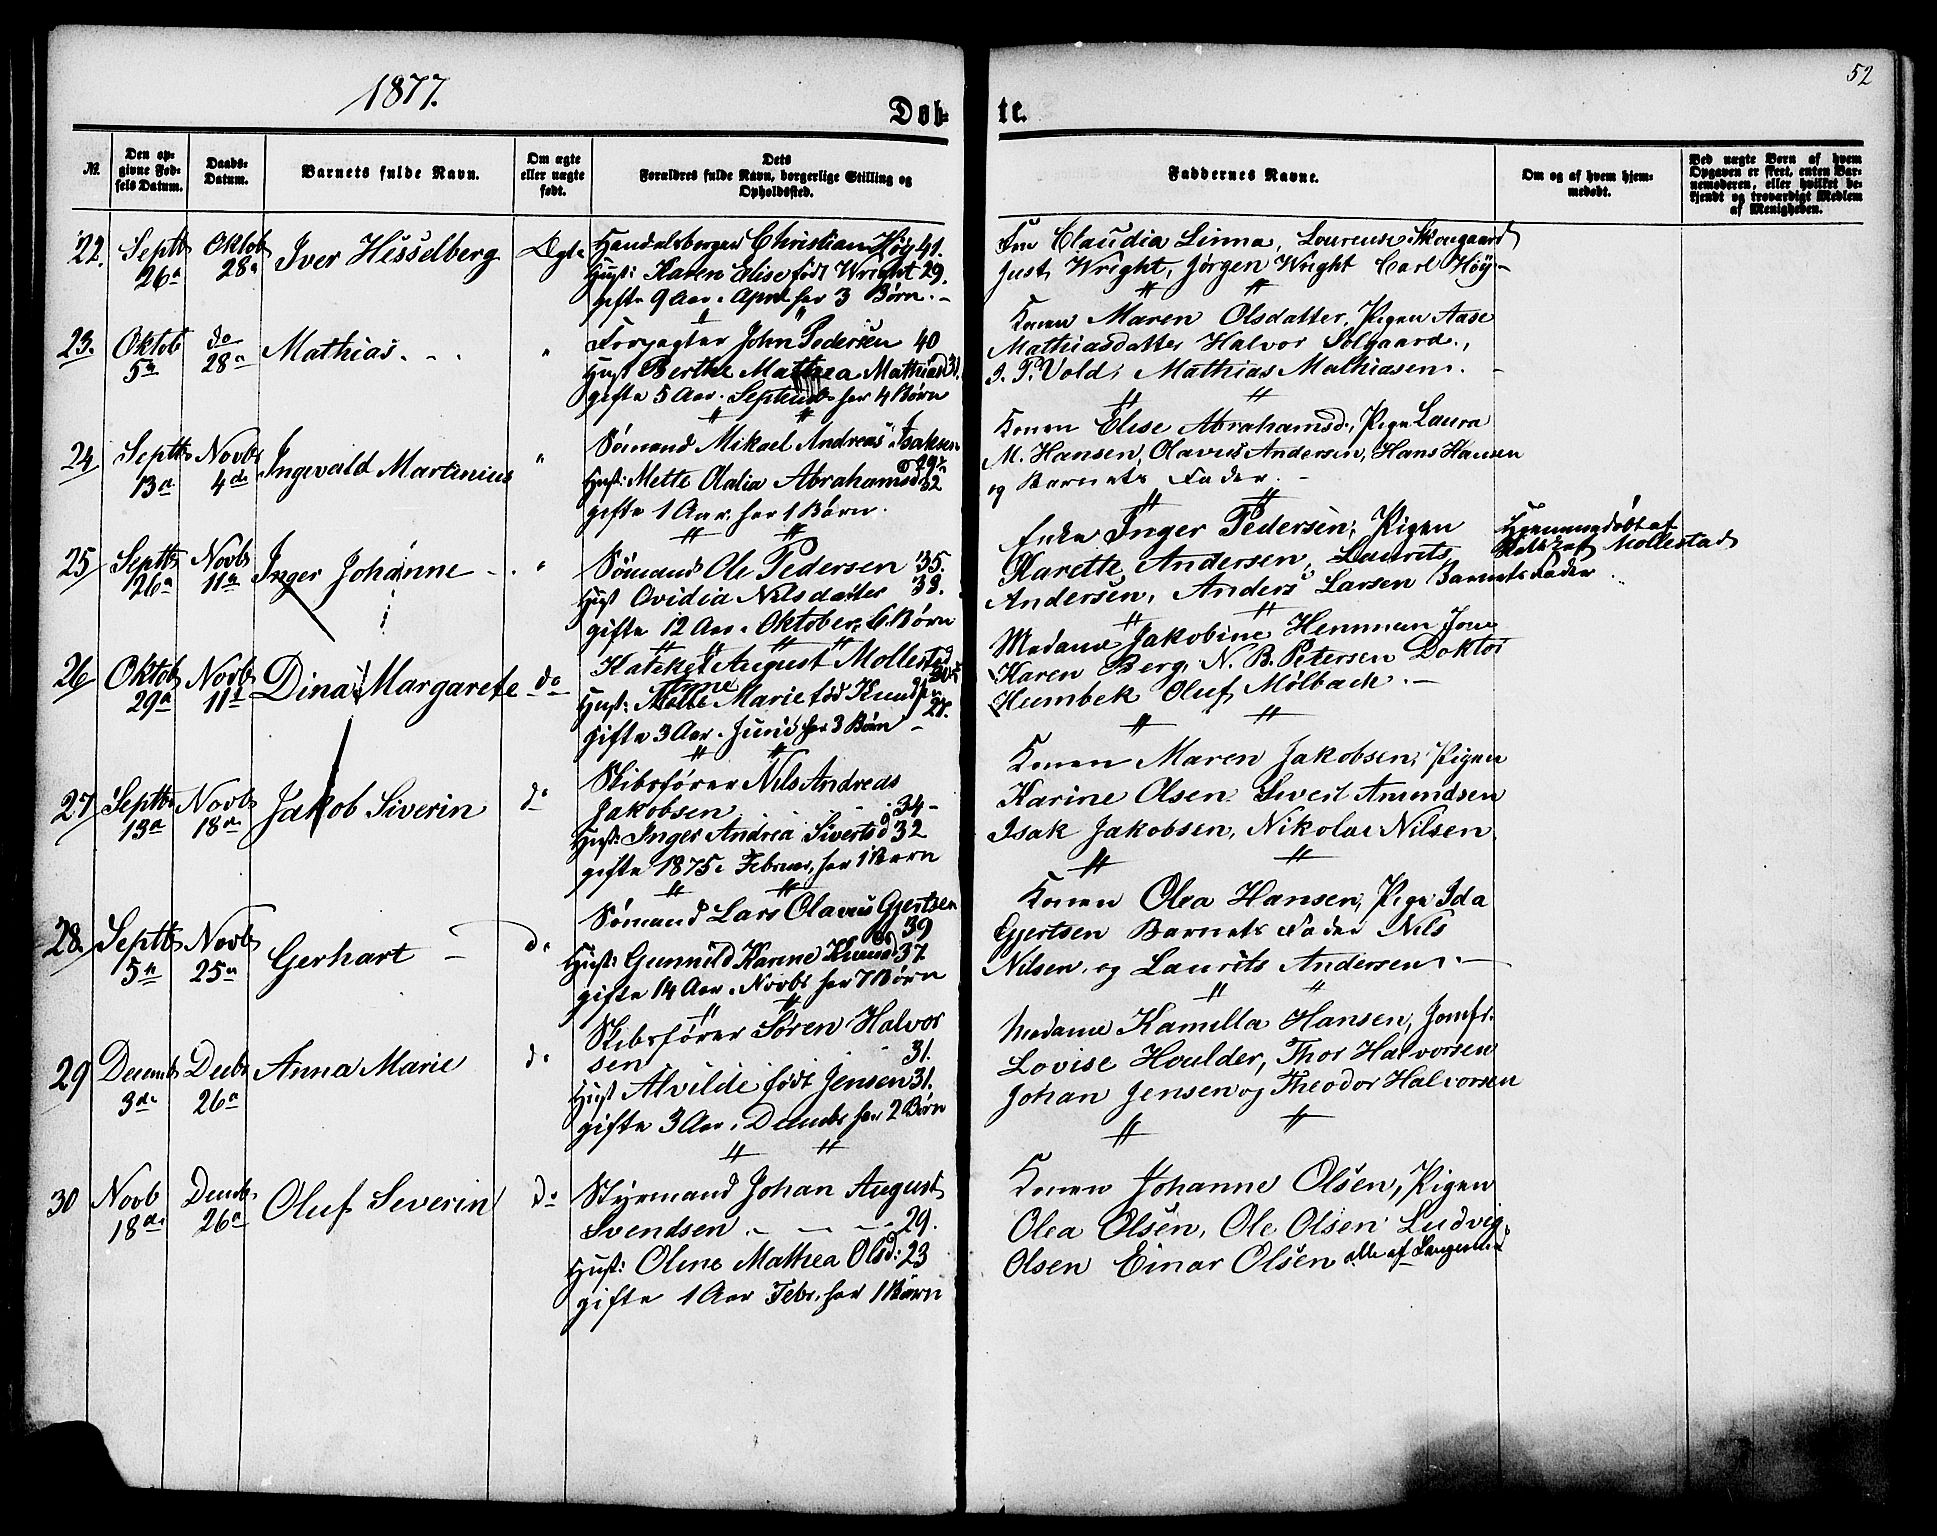 52
1877.
Døb-
te.
No.
Den op-
givne Fød-
sels Datum.
Daabs-
Datum.
Barnets fulde Navn.
Om ægte
eller uægte
født.
Dets
Forældres fulde Navn, borgerlige Stilling og
Opholdssted.
Faddernes Navne.
Om og af hvem hjem-
medøbt.
Ved uægte Børn af hvem
Opgaven er skeet, enten Bar-
nemoderen, eller hvilket be-
kjendt og troværdigt Medlem
af Menigheden.
22.
Septb
26a
Oktob
28a
Iver Hesselberg
Ægte
Handelsborger Christian Høy 41.
Hust: Karen Elise født Wright 29.
gifte 9 Aar. April har 3 Børn.
Fru Claudia Linna, Laurense Skougaard
Just Wright, Jørgen Wright Carl Høy
23.
Oktob
5a
do
28a
Mathias.
"
John Pedersen 40
Hust Berthe Mathea Mathiasd 31.
gifte 5 Aar. Septemb har 4 Børn
Konen Maren Olsdatter, Pigen Aase
Mathiasdatter Halvor Solgaard,
J. P. Vold, Mathias Mathiasen.
24
Septb
13a
Novb
4de
Ingevald Martinius
"
Sømand Mikael Andreas Isaksen
29
Hust: Mette Olalia Abrahamsd 32
gifte 1 Aar. har 1 Børn.
Konen Elise Abrahamsd., Pigen Laura
M. Hansen, Olavus Andersen, Hans Hansen
og Barnets Fader.
25
Septb
26a
Novb
11a
Inger Johanne
"
Sømand Ole Pedersen 35.
Hust Ovidia Nilsdatter 38.
gifte 12 Aar. Oktober, 6 Børn
Enke Inger Pedersen, Pigen
Karethe Andersen, Laurits
Andersen, Anders Larsen Barnets Fader
Hjemmedøbt af
Mollestad
26
Oktob
29a
Novb
11a
Dina Margarete
do
August Mollestad
30
Anne
Hust: Marie fød Knudsen
27.
gifte 3 Aar. Juni har 3 Børn
Madame Jakobine Henman Jom
Karen Berg, N. B. Petersen Doktor
Humbek Oluf Mølbach.
27
Septb
13a
Novb
18a
Jakob Siverin
do
Skibsfører Nils Andreas
Jakobsen 34
Hust: Inger Andrea Sivertsd 32
gifte 1875. Februar, har 1 Barn
Konen Maren Jakobsen, Pigen
Karine Olsen. Sivert Amundsen
Isak Jakobsen, Nikolai Nilsen.
28.
Septb
5a
Novb
25a
Gerhart
do
Sømand Lars Olavus Gjertsen
39
Hust: Gunnild Karine Knudsd 37
gifte 14 Aar. Novbr har 7 Børn
Konen Olea Hansen, Pige Ida
Gjertsen Barnets Fader Nils
Nilsen. og Laurits Andersen.
29
Decemb
3de
Decbr
26a
Anna Marie
do
Skibsfører Søren Halvor
sen 31.
Hust Alvilde født Jensen 31.
gifte 3 Aar. Decembr har 2 Børn
Madame Kamilla Hansen, Jomfr.
Lovise Houlder, Thor Halvorsen
Johan Jensen og Theodor Halvorsen
30
Novb
18de
Decmb.
26a
Oluf Severin
do
Styrmand Johan August
Svendsen 29.
Hust: Oline Mathea Olsd: 23
gifte 1 Aar Febr. har 1 Barn
Konen Johanne Olsen, Pigen
Olea Olsen, Ole Olsen Ludvig
Olsen Einar Olsen alle af